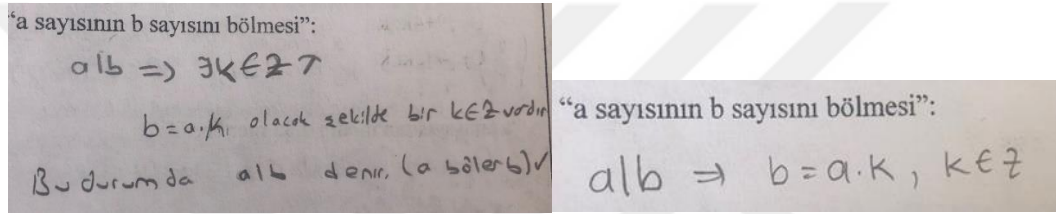 “a sayısının b sayısını bölmesi”:
a|b => ∃k∈Z ↑
b=a.k olacak şekilde bir k∈Z vardır
Bu durumda a|b denir. (a böler b)✓
“a sayısının b sayısını bölmesi”:
a|b ⇒ b=a.k, k∈Z